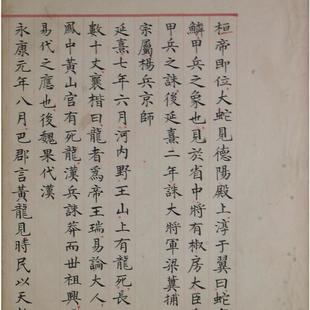 桓帝即位大蛇見德陽殿上淳于翼曰蛇有
鱗甲兵之象也見於省中將有椒房大臣受
甲兵之誅後延熹二年誅大將軍梁冀捕
宗屬楊兵京師
延熹七年六月河内野王山上有龍死長
數十丈襄楷曰龍者為帝王瑞易論大人
鳳中黄山宫有死龍漢兵誅莽而世祖興
易代之應也後魏果代漢
永康元年八月巴郡言黄龍見時民以天